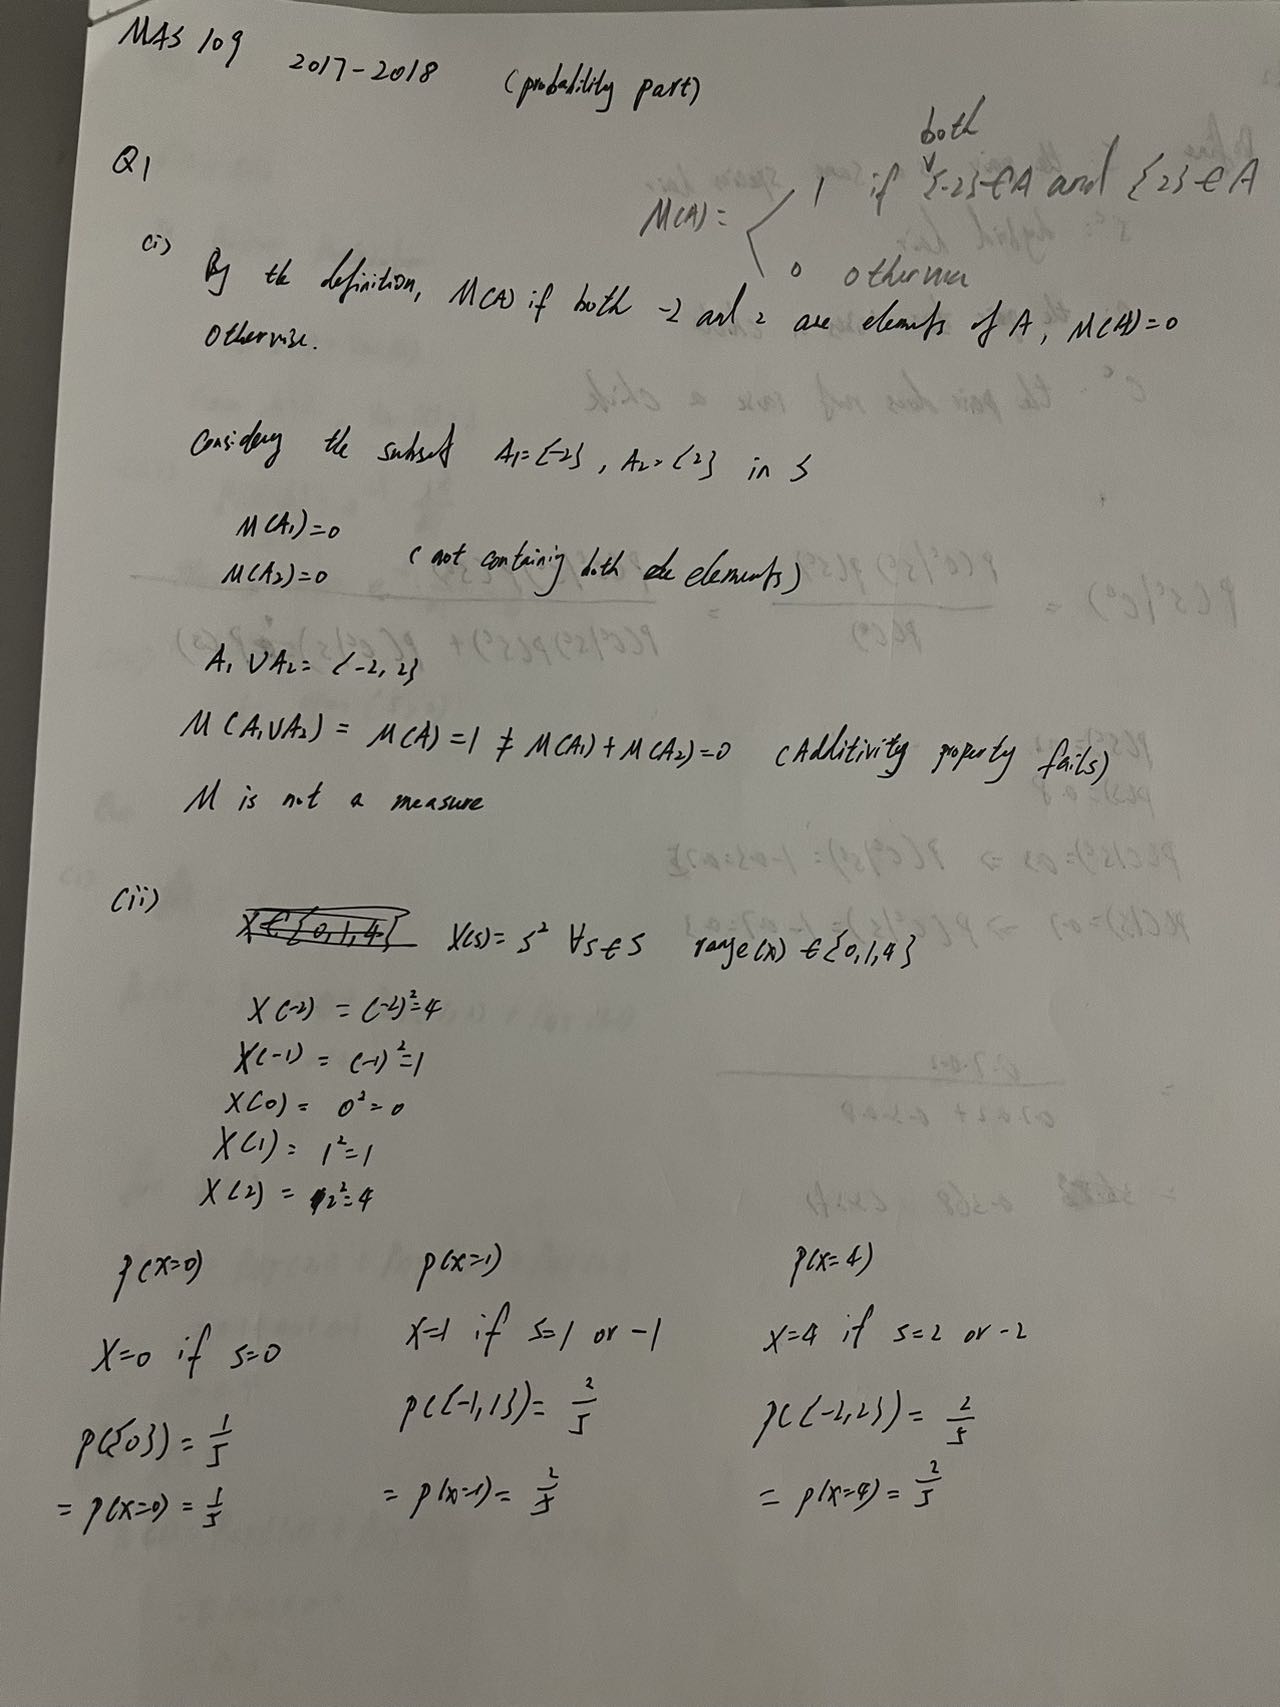 MAS 109
2017-2018 (probability part)
Q1
M(A) = 1 if both {-2} ∈ A and {2} ∈ A
0 otherwise
(i)
By the definition, M(A) if both -2 and 2 are elements of A, M(A)=0
otherwise.
Considering the subset A₁={-2}, A₂={2} in S
M(A₁)=0
M(A₂)=0 (not containing both elements)
A₁ ∪ A₂ = {-2, 2}
M(A₁∪A₂) = M(A) = 1 ≠ M(A₁) + M(A₂) = 0 (Additivity property fails)
M is not a measure
(ii)
X ∈ {0,1,4} X(s) = s² ∀s∈S range(x) ∈ {0,1,4}
X(-2) = (-2)²=4
X(-1) = (-1)²=1
X(0) = 0²=0
X(1) = 1²=1
X(2) = 2²=4
P(X=0) P(X=1) P(X=4)
X=0 if s=0 X=1 if s=1 or -1 X=4 if s=2 or -2
P({0}) = 1/5 P({-1,1}) = 2/5 P({-2,2}) = 2/5
= P(X=0) = 1/5 = P(X=1) = 2/5 = P(X=4) = 2/5